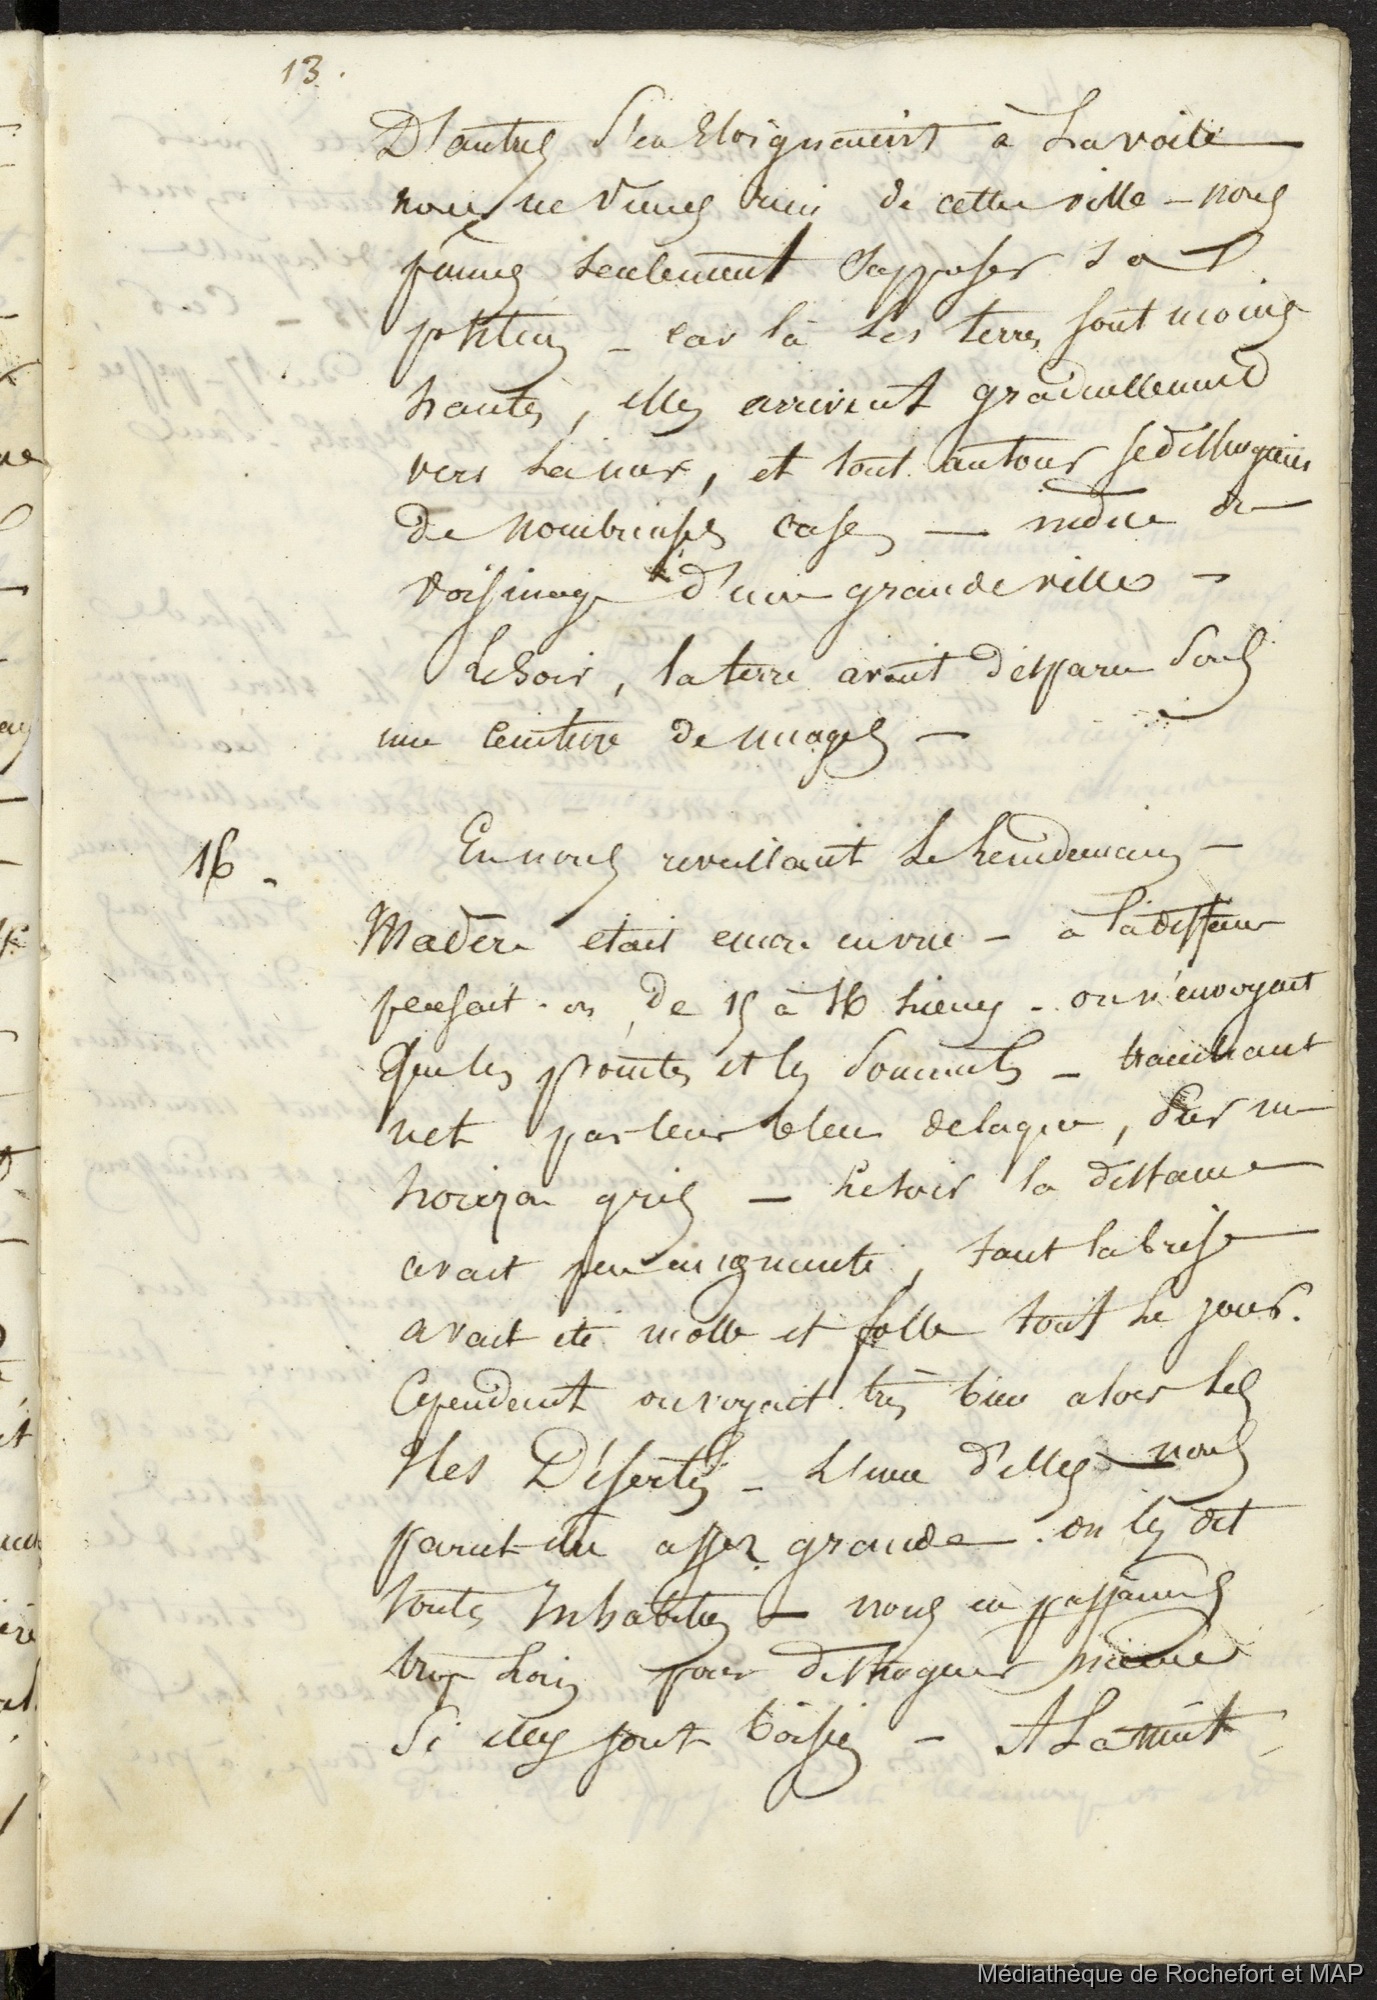 13.
D'autres s'en Eloignaient à La voile
nous ne vimes rien de cette ville – nous
pûmes seulement supposer sa
position – car là les terres sont moins
hautes, elles arrivent graduellement
vers La mer, et tout autour se distinguaient
de nombreuses cases — indice du
voisinage d'une grande ville –
Le Soir, la terre avait disparu sous
une ceinture de nuages –
16 –
En nous reveillant Le Lendemain –
Madère etait encore en vue – à la distance
pensait-on, de 15 à 16 Lieues – on n'en voyait
que les pointes et les sommets – tranchant
net par leur bleu de laque, sur un
horizon gris – Le soir la distance
avait peu augmenté, tant la brise
avait été molle et folle tout le jour.
Cependant on voyait très bien alors Les
Iles Désertes – L'une d'elles nous
parut être assez grande. on les dit
toutes Inhabitées – nous en passâmes
trop Loin pour distinguer même
si elles sont boisées – A La nuit
Médiathèque de Rochefort et MAP